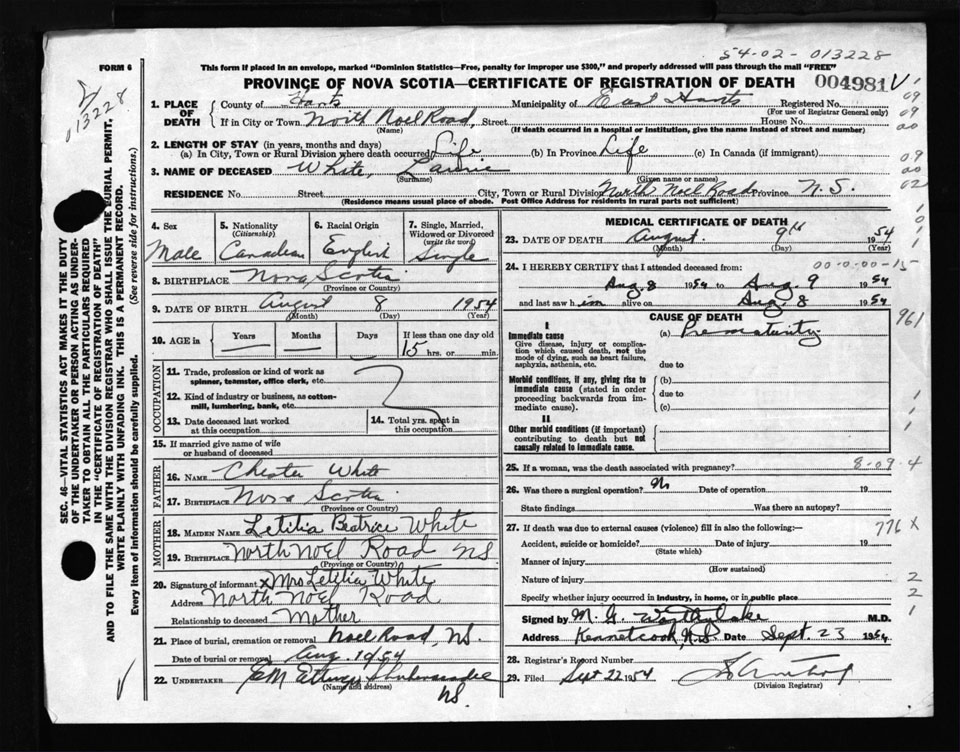 54-02-013228
FORM 6
This form if placed in an envelope, marked "Dominion Statistics—Free, penalty for improper use $300," and properly addressed will pass through the mail "FREE"
PROVINCE OF NOVA SCOTIA—CERTIFICATE OF REGISTRATION OF DEATH 004981
13228
1. PLACE OF DEATH { County of Hants Municipality of East Hants Registered No.
(For use of Registrar General only)
If in City or Town North Noel Road, Street House No.
(Name) (If death occurred in a hospital or institution, give the name instead of street and number)
2. LENGTH OF STAY (in years, months and days)
(a) In City, Town or Rural Division where death occurred Life (b) In Province Life (c) In Canada (if immigrant)
3. NAME OF DECEASED White, Laurie
(Surname) (Given name or names)
RESIDENCE No. Street City, Town or Rural Division North Noel Road Province N.S.
(Residence means usual place of abode. Post Office Address for residents in rural parts not sufficient)
SEC. 46—VITAL STATISTICS ACT MAKES IT THE DUTY
OF THE UNDERTAKER OR PERSON ACTING AS UNDER-
TAKER TO OBTAIN ALL THE PARTICULARS REQUIRED
IN THE "CERTIFICATE OF REGISTRATION OF DEATH"
AND TO FILE THE SAME WITH THE DIVISION REGISTRAR WHO SHALL ISSUE THE BURIAL PERMIT.
WRITE PLAINLY WITH UNFADING INK. THIS IS A PERMANENT RECORD.
Every item of information should be carefully supplied. (See reverse side for instructions.)
4. Sex Male
5. Nationality (Citizenship) Canadian
6. Racial Origin English
7. Single, Married, Widowed or Divorced (write the word) Single
8. BIRTHPLACE Nova Scotia
(Province or Country)
9. DATE OF BIRTH August 8 1954
(Month) (Day) (Year)
10. AGE in Years Months Days If less than one day old
15 hrs. or min.
OCCUPATION
11. Trade, profession or kind of work as
spinner, teamster, office clerk, etc.
12. Kind of industry or business, as cotton-
mill, lumbering, bank, etc.
13. Date deceased last worked
at this occupation
14. Total yrs. spent in
this occupation
15. If married give name of wife
or husband of deceased
FATHER
16. NAME Chester White
17. BIRTHPLACE Nova Scotia
(Province or Country)
MOTHER
18. MAIDEN NAME Letitia Beatrice White
19. BIRTHPLACE North Noel Road NS
(Province or Country)
20. Signature of informant x Mrs Letitia White
Address North Noel Road
Relationship to deceased Mother
21. Place of burial, cremation or removal Noel Road, NS.
Date of burial or removal Aug. 1954
22. UNDERTAKER
(Name and address)
NS.
MEDICAL CERTIFICATE OF DEATH
23. DATE OF DEATH August 9th 1954
(Month) (Day) (Year)
24. I HEREBY CERTIFY that I attended deceased from: 00-0-00-15
Aug. 8 1954 to Aug. 9 1954
and last saw him alive on Aug. 8 1954
CAUSE OF DEATH
961
I
Immediate cause
Give disease, injury or complica-
tion which caused death, not the
mode of dying, such as heart failure,
asphyxia, asthenia, etc.
(a) Prematurity
due to
Morbid conditions, if any, giving rise to
immediate cause (stated in order
proceeding backwards from im-
mediate cause).
(b)
due to
(c)
II
Other morbid conditions (if important)
contributing to death but not
causally related to immediate cause.
25. If a woman, was the death associated with pregnancy? 8-09-4
26. Was there a surgical operation? No Date of operation 19
State findings Was there an autopsy?
27. If death was due to external causes (violence) fill in also the following:— 776 X
Accident, suicide or homicide? Date of injury 19
(State which)
Manner of injury
(How sustained)
Nature of injury
Specify whether injury occurred in industry, in home, or in public place
Signed by M. G. M.D.
Address Kennetcook, N.S. Date Sept. 23 1954
28. Registrar's Record Number
29. Filed Sept 22 1954
(Division Registrar)